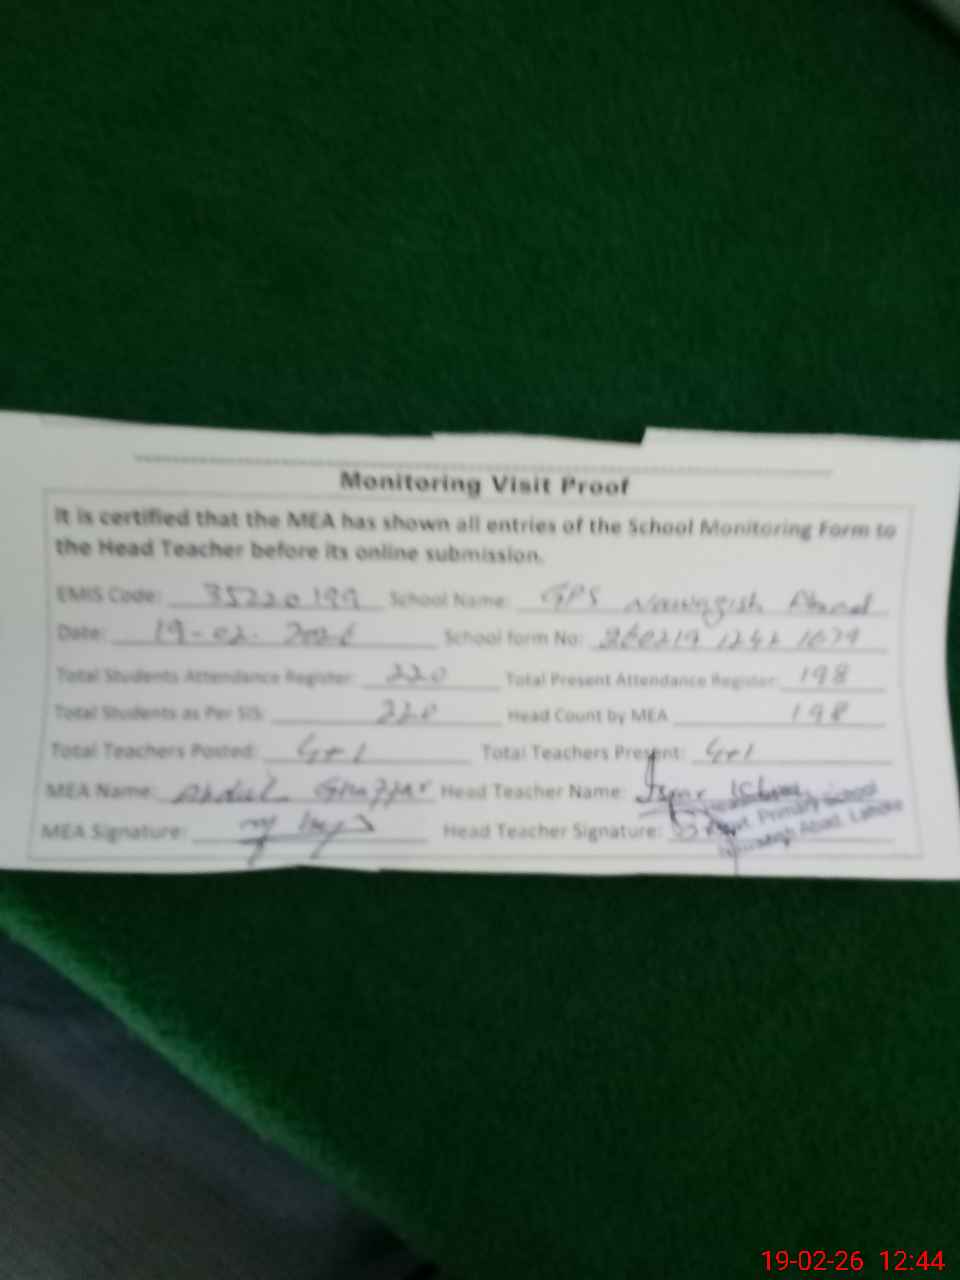 Monitoring Visit Proof
It is certified that the MEA has shown all entries of the School Monitoring Form to
the Head Teacher before its online submission.
EMIS Code: 35220199 School Name: GPS Nawazish Abad
Date: 19-02-2026 School form No: 260219 1242 1079
Total Students Attendance Register: 220 Total Present Attendance Register: 198
Total Students as Per SIS: 220 Head Count by MEA 198
Total Teachers Posted: 4+1 Total Teachers Present: 4+1
MEA Name: Abdul Ghaffar Head Teacher Name:
MEA Signature: Head Teacher Signature:
Govt. Primary School
Abad Lahore
19-02-26 12:44